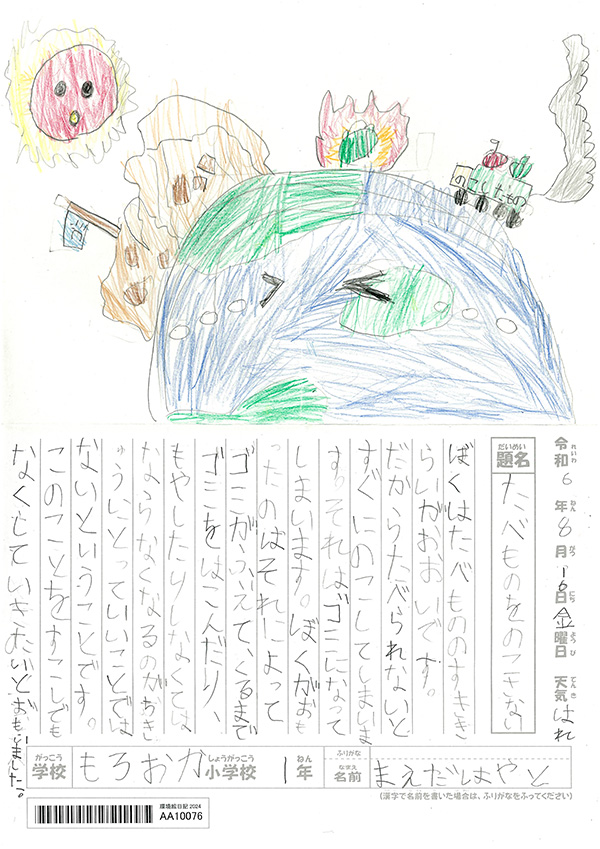 ゴミ
のこしたもの
令和6年8月16日金曜日 天気 はれ
れいわ ねん がつ にち ようび てんき
だいめい
題名
たべものをのこさない
ぼくはたべもののすきき
らいがおおいです。
だからたべられないと
すぐにのこしてしまいま
す。それはゴミになって
しまいます。ぼくがおも
ったのはそれによって
ゴミがふえて、くるまで
ゴミをはこんだり、
もやしたりしなくては
ならなくなるのがちき
ゅうにとっていいことでは
ないということです。
このことをすこしでも
なくしていきたいとおもいました。
がっこう
学校
もろおか
しょうがっこう
小学校
1
ねん
年
ふりがな
なまえ
名前
まえだはやと
(漢字で名前を書いた場合は、ふりがなをふってください)
環境絵日記 2024
AA10076